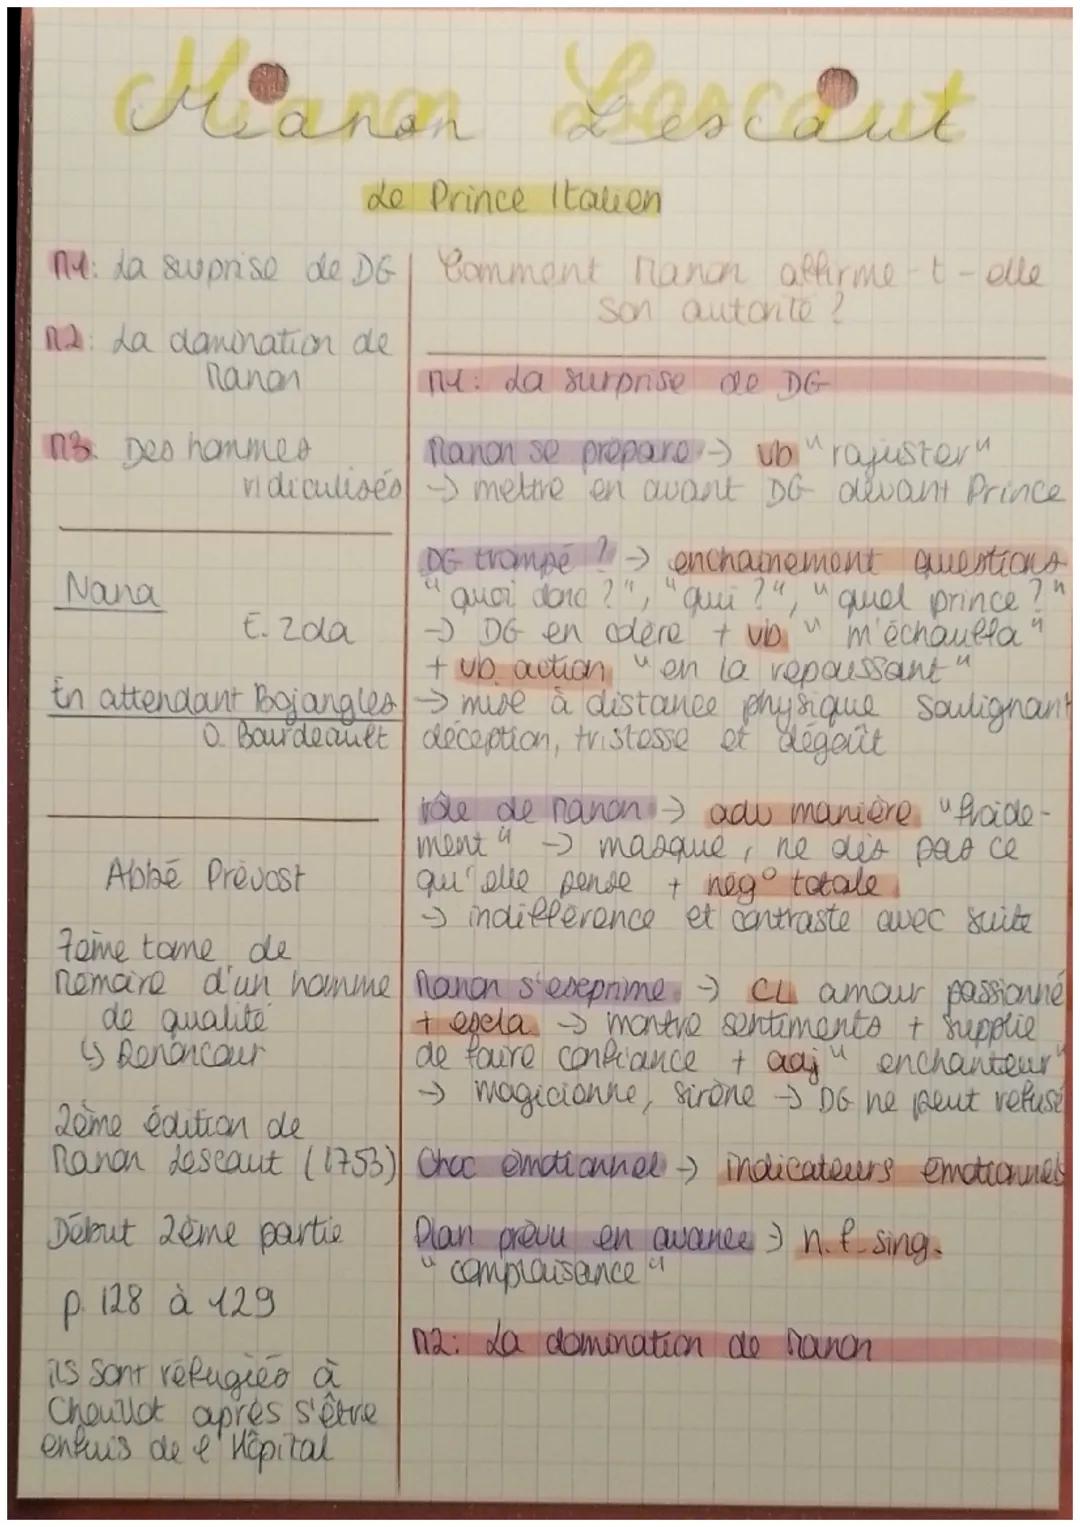 Manon Lescaut
Le Prince Italien
M1: La surprise de DG
M2: La domination de
Manon
M3: Des hommes
ridiculisés
Nana
E. Zola
En attendant Bojangles
O. Bourdeault
Abbé Prévost
7ème tome de
Mémoire d'un homme
de qualité
↳ Renoncour
2ème édition de
Manon Lescaut (1753)
Début 2ème partie
p. 128 à 129
ils sont réfugiés à
Chaillot après s'être
enfuis de l'Hôpital
Comment Manon affirme-t-elle
son autorité ?
M1: La surprise de DG
Manon se prépare → vb "rajuster"
→ mettre en avant DG devant Prince
DG trompé ? → enchainement questions
"quoi donc ?", "qui ?", "quel prince ?"
→ DG en colère + vb "m'échauffa"
+ vb action "en la repoussant"
→ mise à distance physique soulignant
déception, tristesse et dégoût
rôle de Manon → adv manière "froide-
ment" → masque, ne dis pas ce
qu'elle pense + nég° totale
→ indifférence et contraste avec suite
Manon s'exprime → CL amour passionné
+ excla → montre sentiments + supplie
de faire confiance + adj "enchanteur"
→ magicienne, sirène → DG ne peut refusé
Choc émotionnel → indicateurs émotionnels
Plan prévu en avance → n.f. sing.
"complaisance"
M2: La domination de Manon